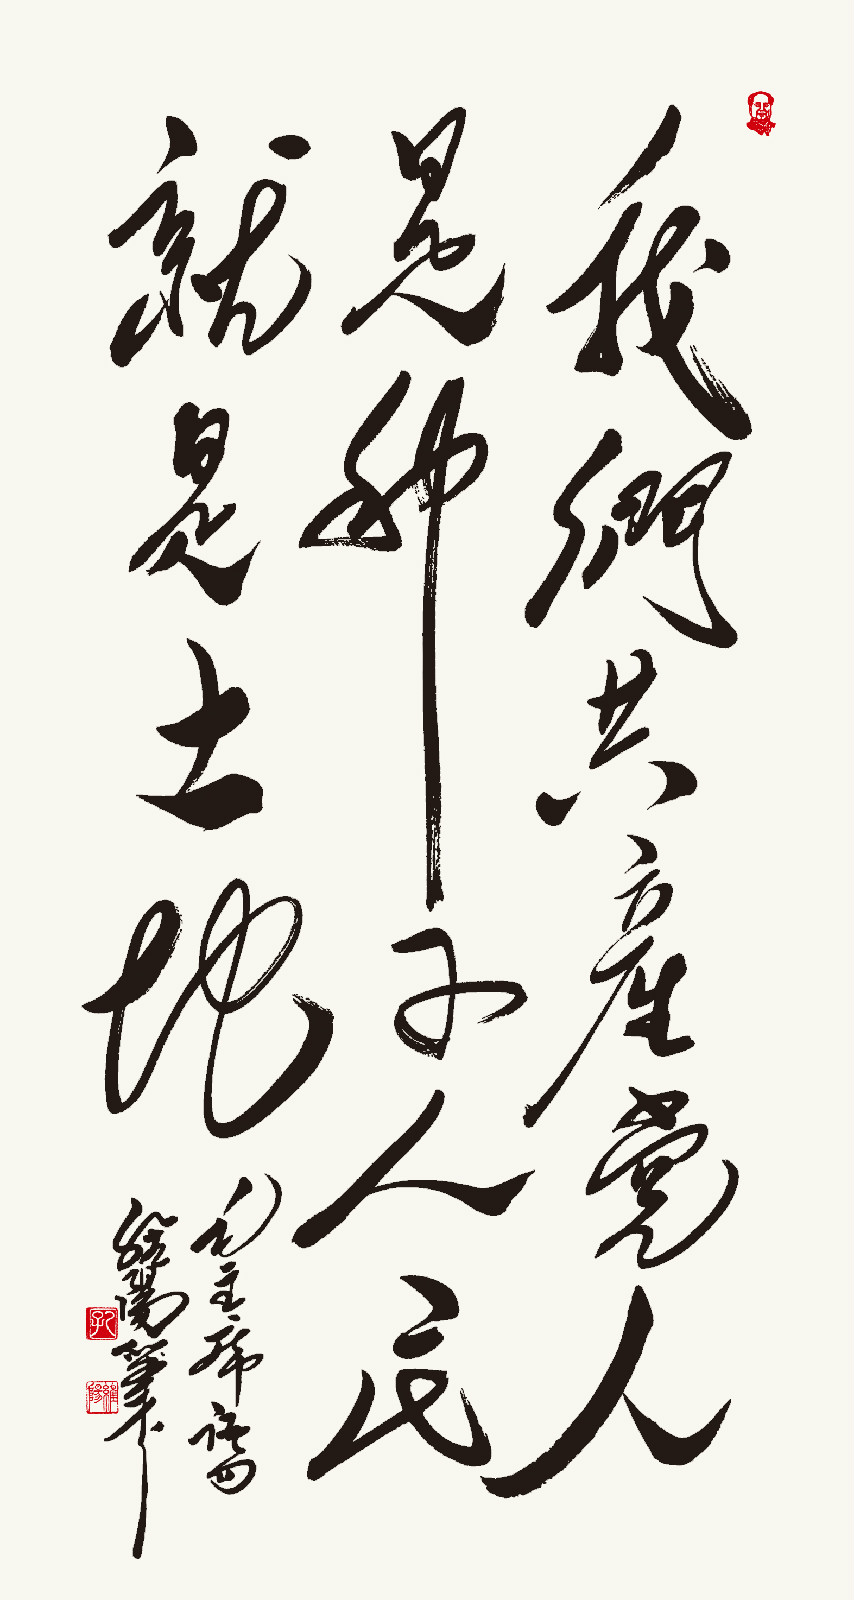 我們共產党人
是种子人民
就是土地
毛主席語